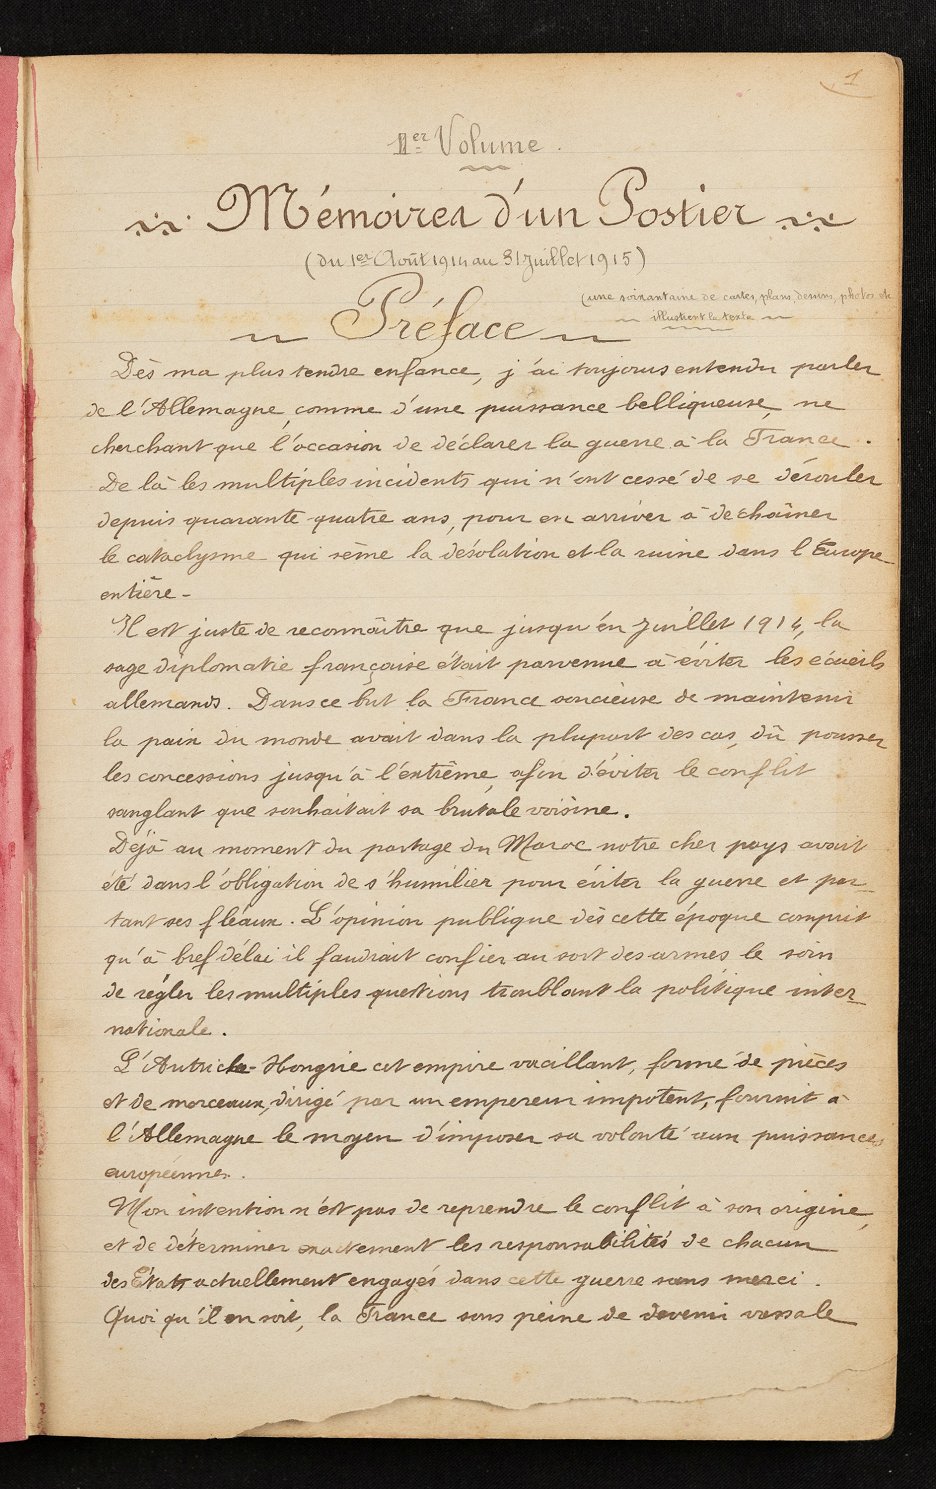 1
1er Volume.
Mémoires d'un Postier
(du 1er Août 1914 au 31 Juillet 1915)
(une soixantaine de cartes, plans, dessins, photos etc
illustrent le texte
Préface
Dès ma plus tendre enfance, j'ai toujours entendu parler
de l'Allemagne, comme d'une puissance belliqueuse, ne
cherchant que l'occasion de déclarer la guerre à la France.
De là les multiples incidents qui n'ont cessé de se dérouler
depuis quarante quatre ans, pour en arriver à dechaîner
le cataclysme qui sème la désolation et la ruine dans l'Europe
entière.
Il est juste de reconnaître que jusqu'en Juillet 1914, la
sage diplomatie française était parvenue à éviter les écueils
allemands. Dans ce but la France soucieuse de maintenir
la paix du monde avait dans la plupart des cas, dû pousser
les concessions jusqu'à l'extrême, afin d'éviter le conflit
sanglant que souhaitait sa brutale voisine.
Déjà au moment du partage du Maroc notre cher pays avait
été dans l'obligation de s'humilier pour éviter la guerre et par-
tant ses fléaux. L'opinion publique dès cette époque comprit
qu'à bref délai il faudrait confier au sort des armes le soin
de régler les multiples questions troublant la politique inter-
nationale.
L'Autriche-Hongrie cet empire vacillant, formé de pièces
et de morceaux, dirigé par un empereur impotent, fournit à
l'Allemagne le moyen d'imposer sa volonté aux puissances
européennes.
Mon intention n'est pas de reprendre le conflit à son origine,
et de déterminer exactement les responsabilités de chacun
des États actuellement engagés dans cette guerre sans merci.
Quoi qu'il en soit, la France sous peine de devenir vassale